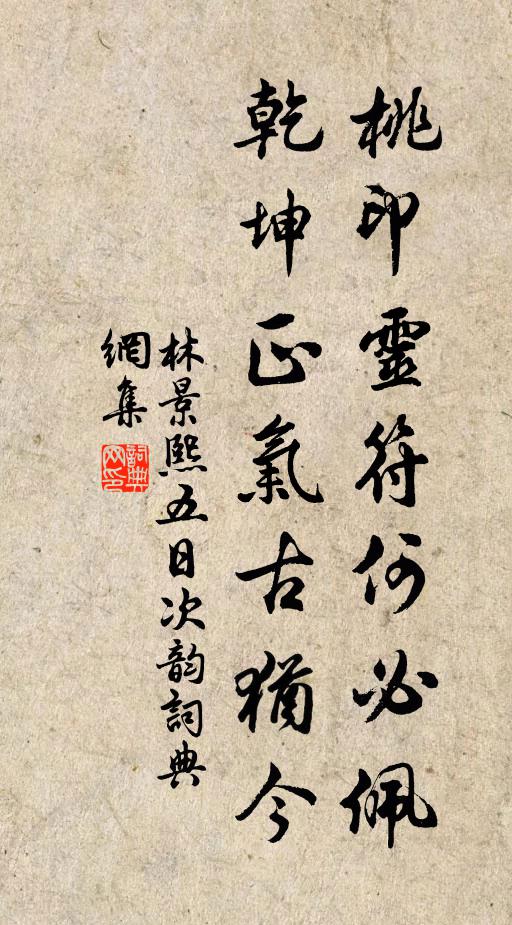 桃印靈符何必佩
乾坤正氣古猶今
林景熙五日次韵詞典
網集
詞典網印